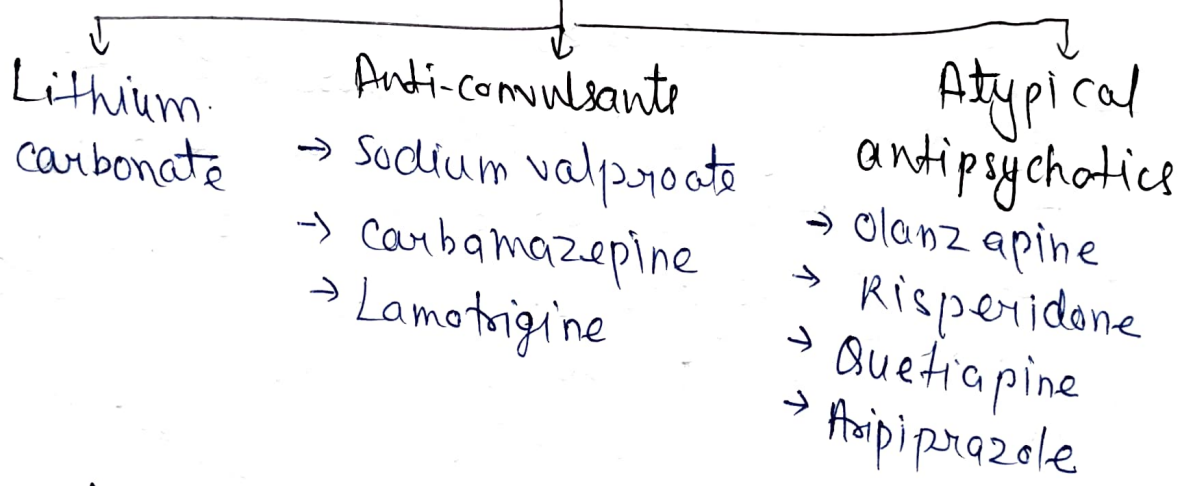 Lithium
carbonate
Anti-convulsants
→ Sodium valproate
→ Carbamazepine
→ Lamotrigine
Atypical
antipsychotics
→ Olanzapine
→ Risperidone
→ Quetiapine
→ Aripiprazole